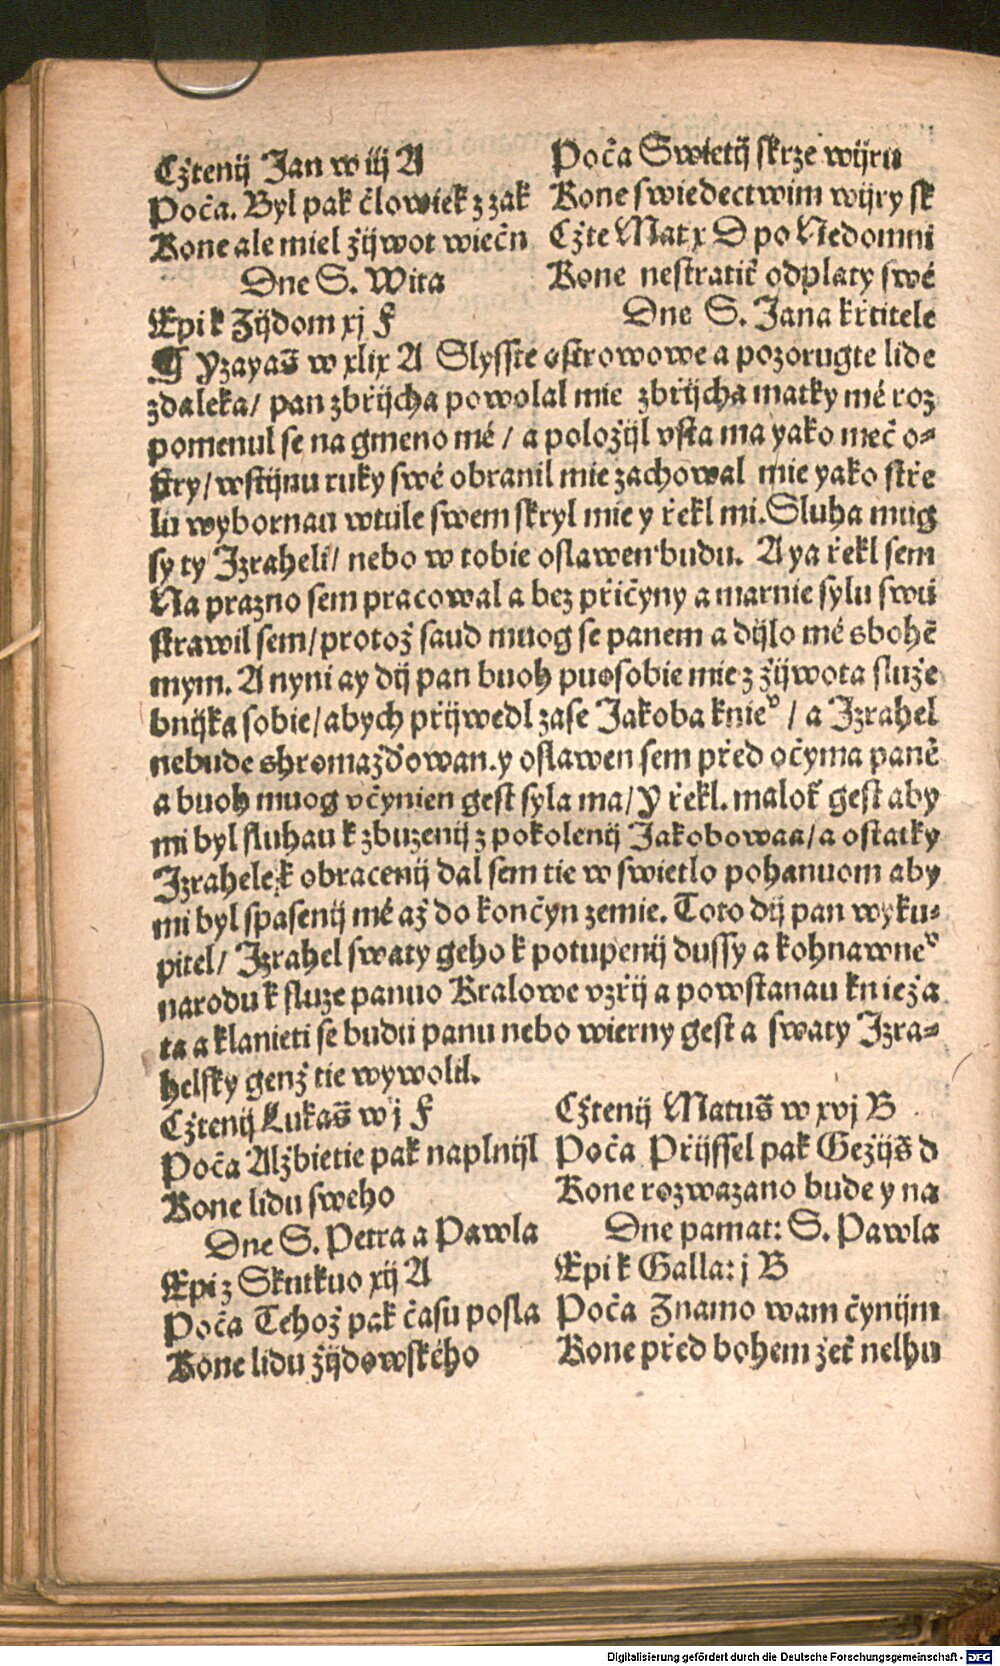 Cżtenij Jan w iij A
Poča. Byl pak člowiek z zak
Kone ale miel žijwot wiečn
Dne S. Wita
Epi k Židom xj F
Poča Swietij skrze wijru
Kone swiedectwim wijry sk
Cżte Mat x D po Nedomni
Kone nestratiť odplaty swé
Dne S. Jana křtitele
¶ Yzayaš w xlix A Slysste ostrowowe a pozorugte lide
zdaleka/ pan zbřijcha powolal mie zbřijcha matky mé roz
pomenul se na gmeno mé / a položijl vsta ma yako meč o⸗
stry/ wstijnu ruky swé obranil mie zachowal mie yako stře
lu wybornau wtule swem skryl mie y řekl mi. Sluha mug
sy ty Izraheli/ nebo w tobie oslawen budu. A ya řekl sem
Na prazno sem pracowal a bez přičyny a marnie sylu swú
strawil sem/ protož saud muog se panem a dijlo mé sbohē
mym. A nyni ay dij pan buoh puosobie mie z žijwota služe
bnijka sobie/ abych přijwedl zase Jakoba knieͮ / a Izrahel
nebude shromažďowan. y oslawen sem před očyma panē
a buoh muog včynien gest syla ma/ Y řekl. maloť gest aby
mi byl sluhau k zbuzenij z pokolenij Jakobowaa/ a ostatky
Izrahele k obracenij dal sem tie w swietlo pohanuom aby
mi byl spasenij mé až do končyn zemie. Toto dij pan wyku⸗
pitel/ Izrahel swaty geho k potupenij dussy a kohnawneͮ
narodu k sluze panuo Kralowe vzřij a powstanau knieža
ta a klanieti se budu panu nebo wierny gest a swaty Izra⸗
helsky genž tie wywolil.
Cżtenij Lukaš w j F
Poča Alžbietie pak naplnijl
Kone lidu sweho
Dne S. Petra a Pawla
Epi z Skutkuo xij A
Poča Tehož pak času posla
Kone lidu žijdowského
Cżtenij Matuš w xvj B
Poča Přijssel pak Gežijš d
Kone rozwazano bude y na
Dne pamat: S. Pawla
Epi k Galla: j B
Poča Znamo wam čynijm
Kone před bohem žeť nelhu
Digitalisierung gefördert durch die Deutsche Forschungsgemeinschaft - DFG